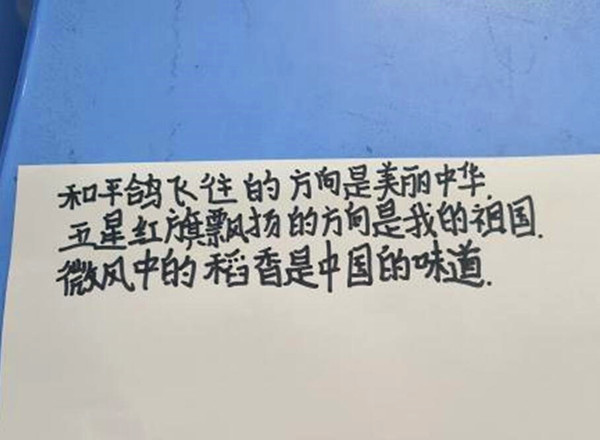 和平鸽飞往的方向是美丽中华.
五星红旗飘扬的方向是我的祖国.
微风中的稻香是中国的味道.